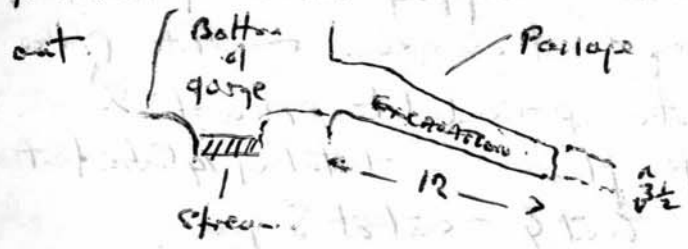 out.
Bottom
of
gorge
Passage
EXCAVATION
12
3½
Stream